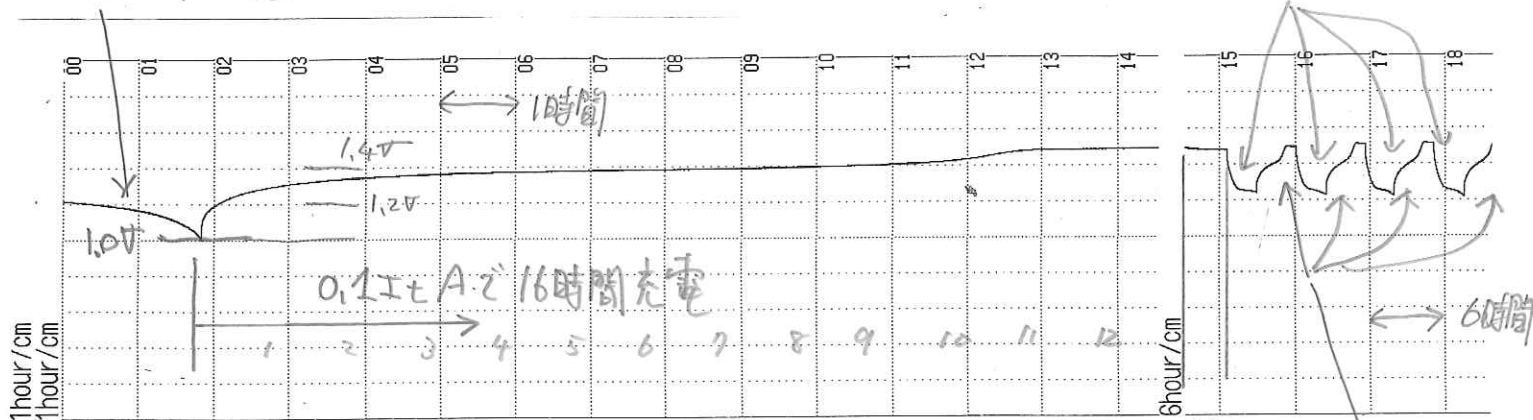 00 01 02 03 04 05 06 07 08 09 10 11 12 13 14 15 16 17 18
1時間
1.4V
1.2V
1.0V
0.1It Aで16時間充電
1 2 3 4 5 6 7 8 9 10 11 12
6時間
1hour/cm
1hour/cm
6hour/cm